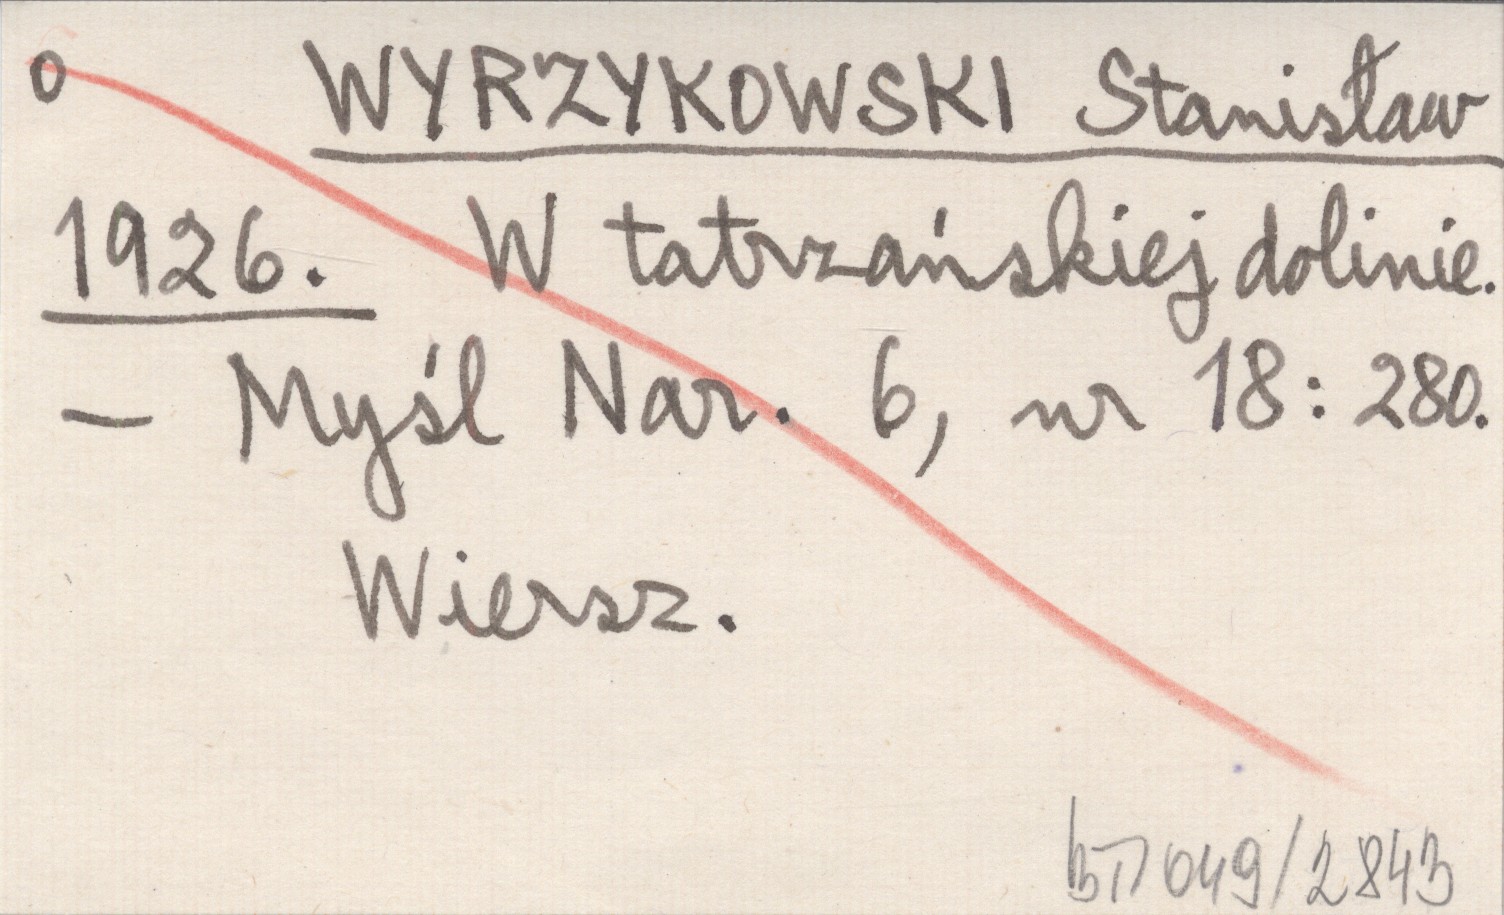 o WYRZYKOWSKI Stanisław
1926. W tatrzańskiej dolinie.
— Myśl Nar. 6, nr 18: 280.
Wiersz.
049/2843